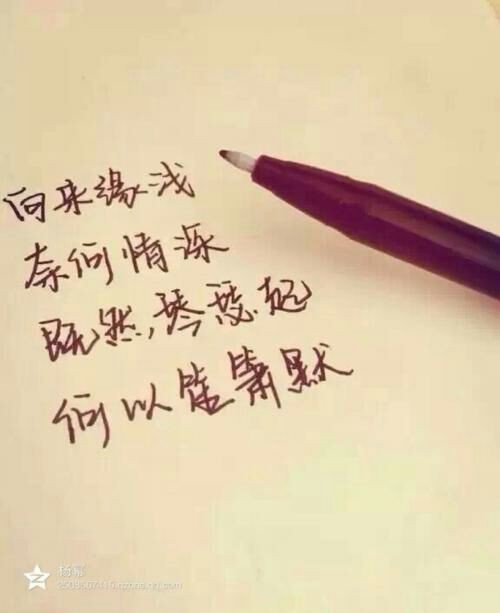 向来缘浅
奈何情深
既然琴瑟起
何以笙箫默
杨幂